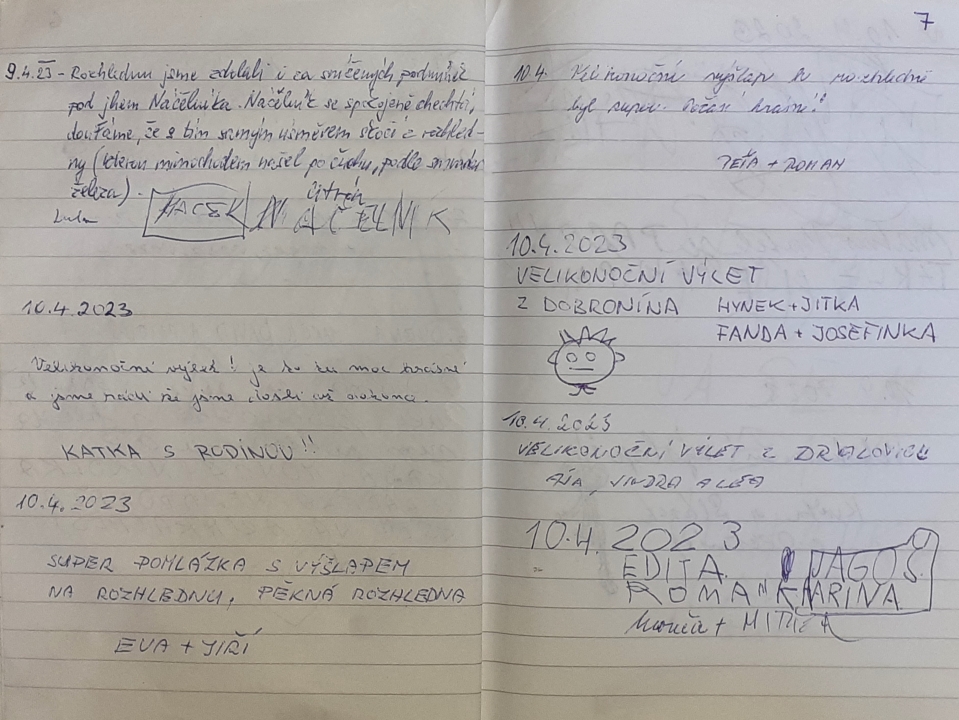 9.4.23 - Rozhlednu jsme zdolali i za snížených podmínek
pod jhem Náčelníka. Náčelník se spokojeně chechtá,
doufáme, že s tím samým úsměvem skočí z rozhled-
ny (kterou mimochodem našel po čichu, podle
železa).
HACEK NÁČELNÍK
10.4.2023
Velikonoční výlet! je to tu moc krásné
a jsme rádi že jsme došli až
KATKA S RODINOU!!
10.4.2023
SUPER POMLÁZKA S VÝŠLAPEM
NA ROZHLEDNU, PĚKNÁ ROZHLEDNA
EVA + JIŘÍ
7
10.4. Velikonoční výšlap k rozhledně
byl super. Počasí krásné!!
PEŤA + ROMAN
10.4.2023
VELIKONOČNÍ VÝLET
Z DOBRONÍNA HYNEK + JITKA
FANDA + JOSEFINKA
10.4.2023
VELIKONOČNÍ VÝLET Z
10.4.2023
EDITA JAGOŠ
ROMAN KARINA